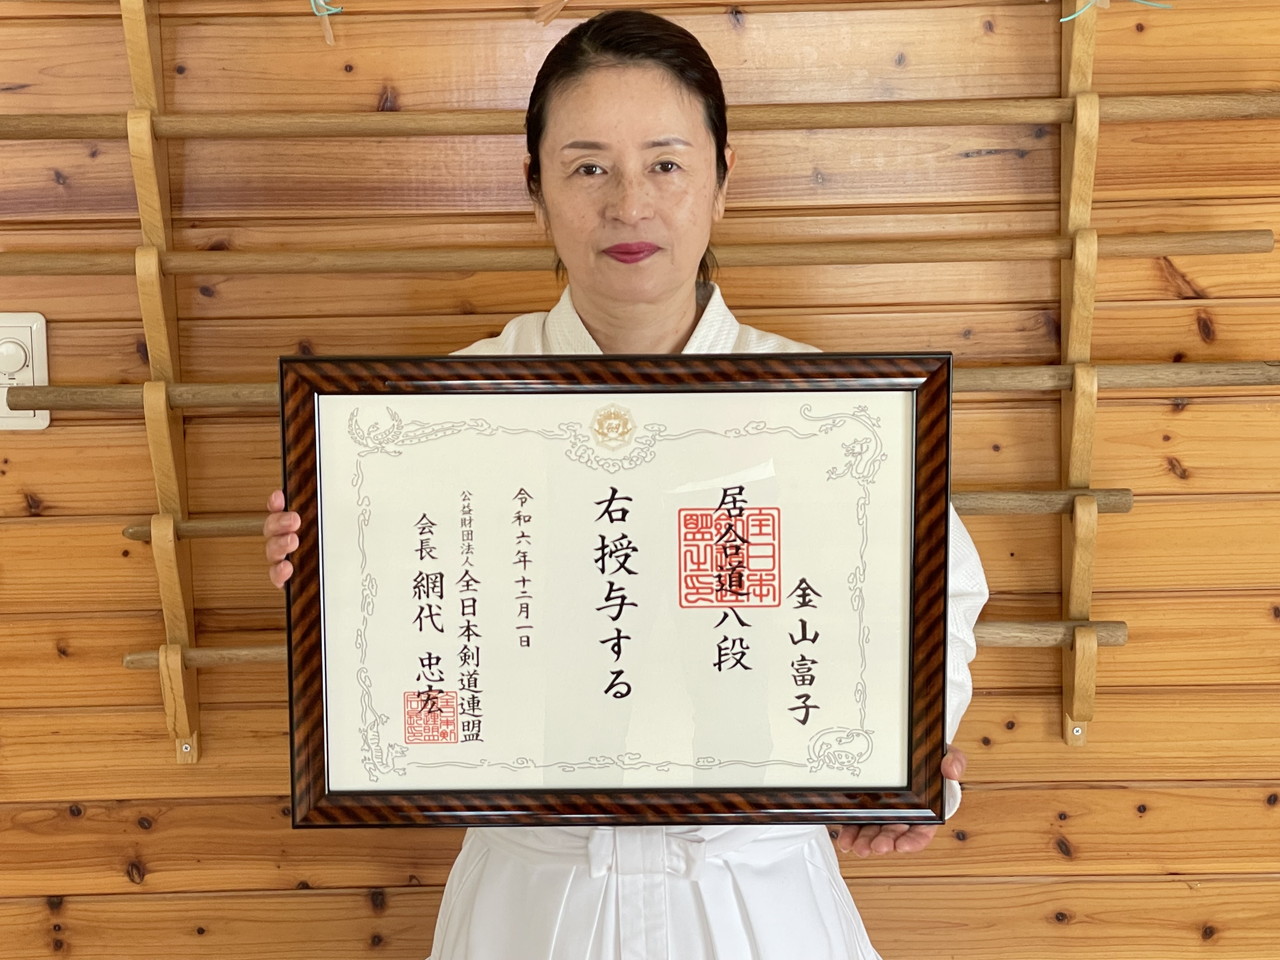 金山富子
居合道八段
全日本剣道連盟之印
右授与する
令和六年十二月一日
公益財団法人 全日本剣道連盟
会長 網代 忠宏